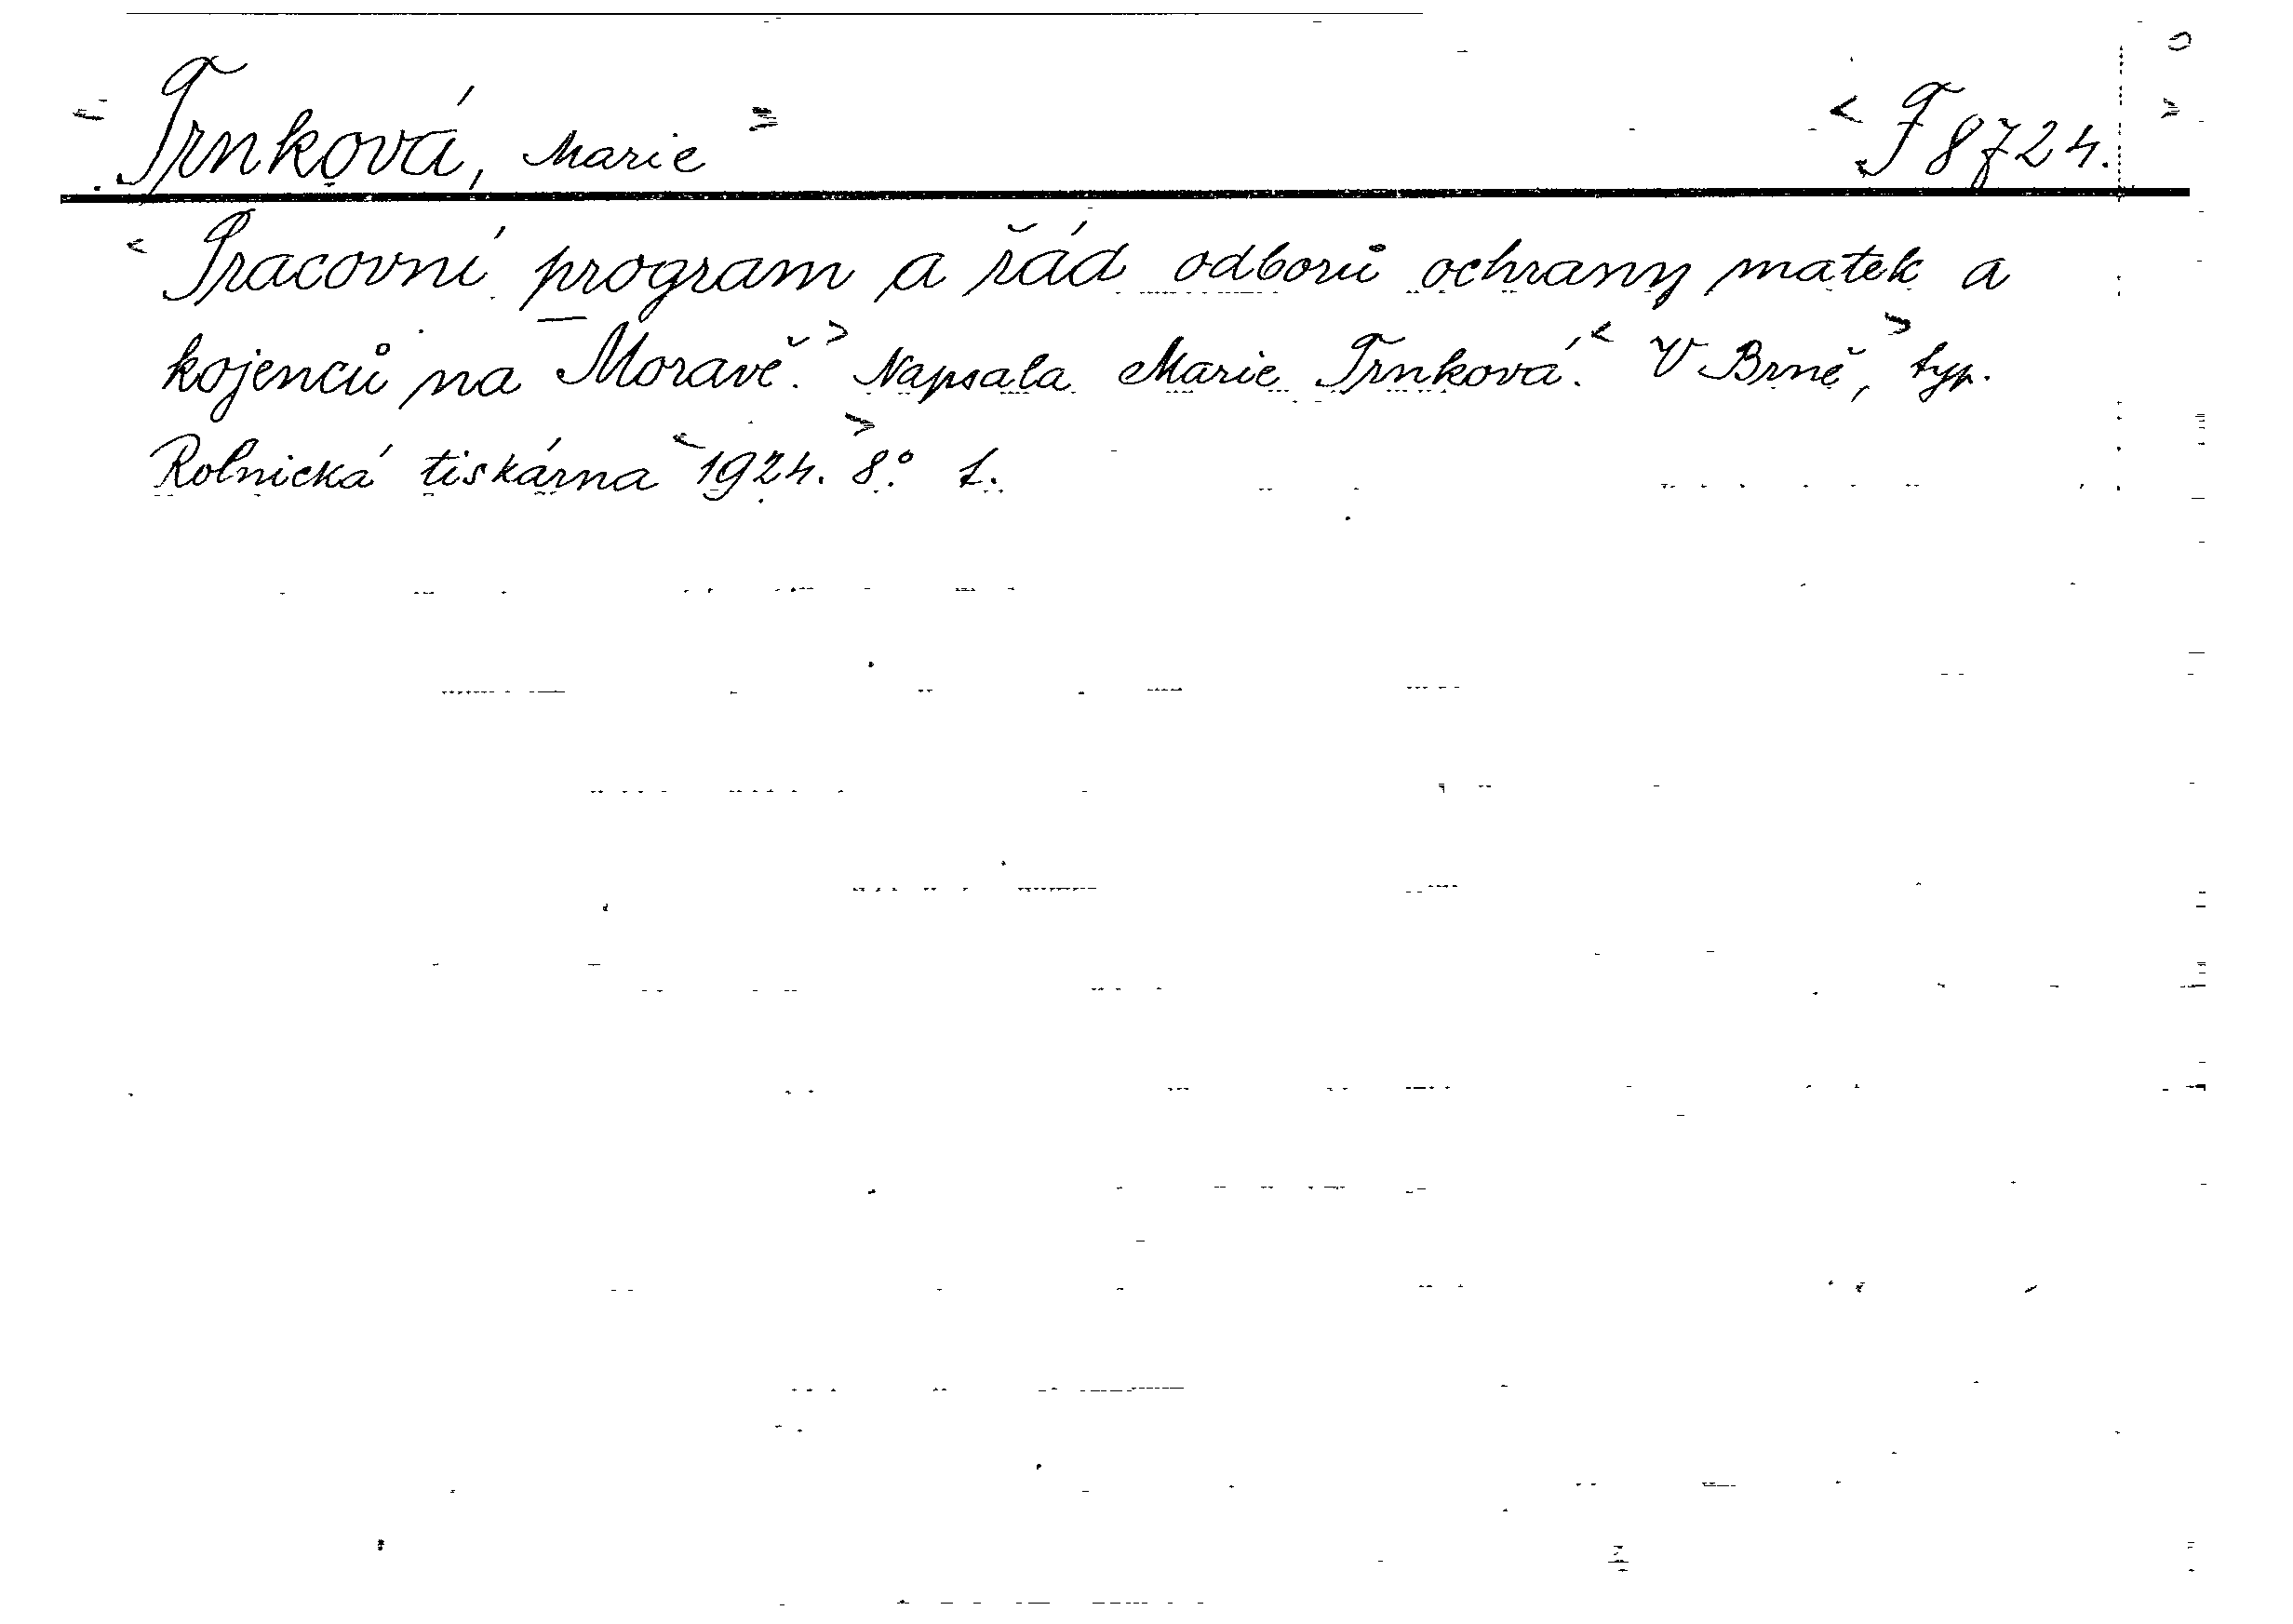 <Trnková, Marie> <F 8724.>
<Pracovní program a řád odborů ochrany matek a
kojenců na Moravě.> Napsala Marie Trnková. <V Brně,> typ.
Rolnická tiskárna <1924.> 8° 1.